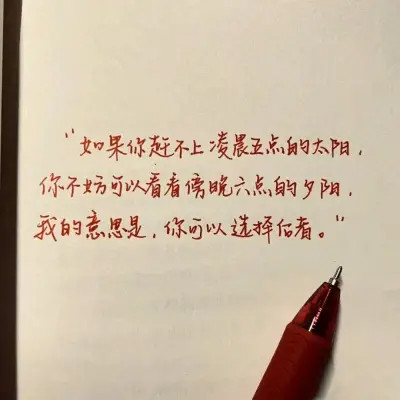 “如果你赶不上凌晨五点的太阳，
你不妨可以看看傍晚六点的夕阳，
我的意思是，你可以选择活着。”